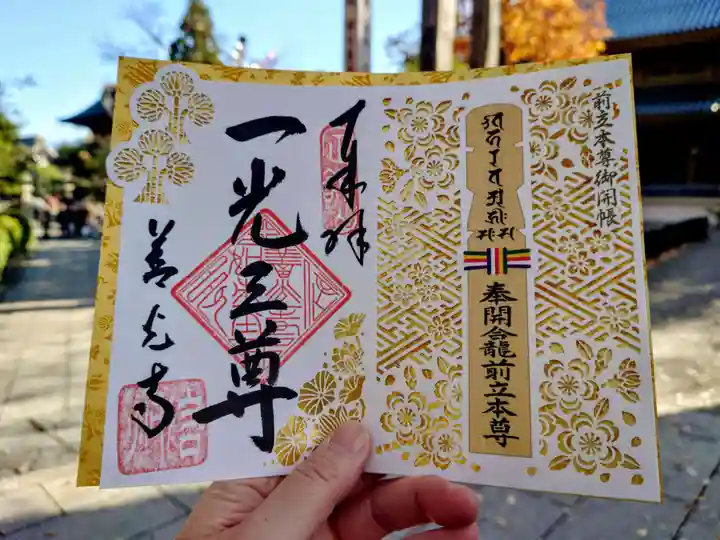 前立本尊御開帳
奉開合龍前立本尊
奉拝
一光三尊
善光寺